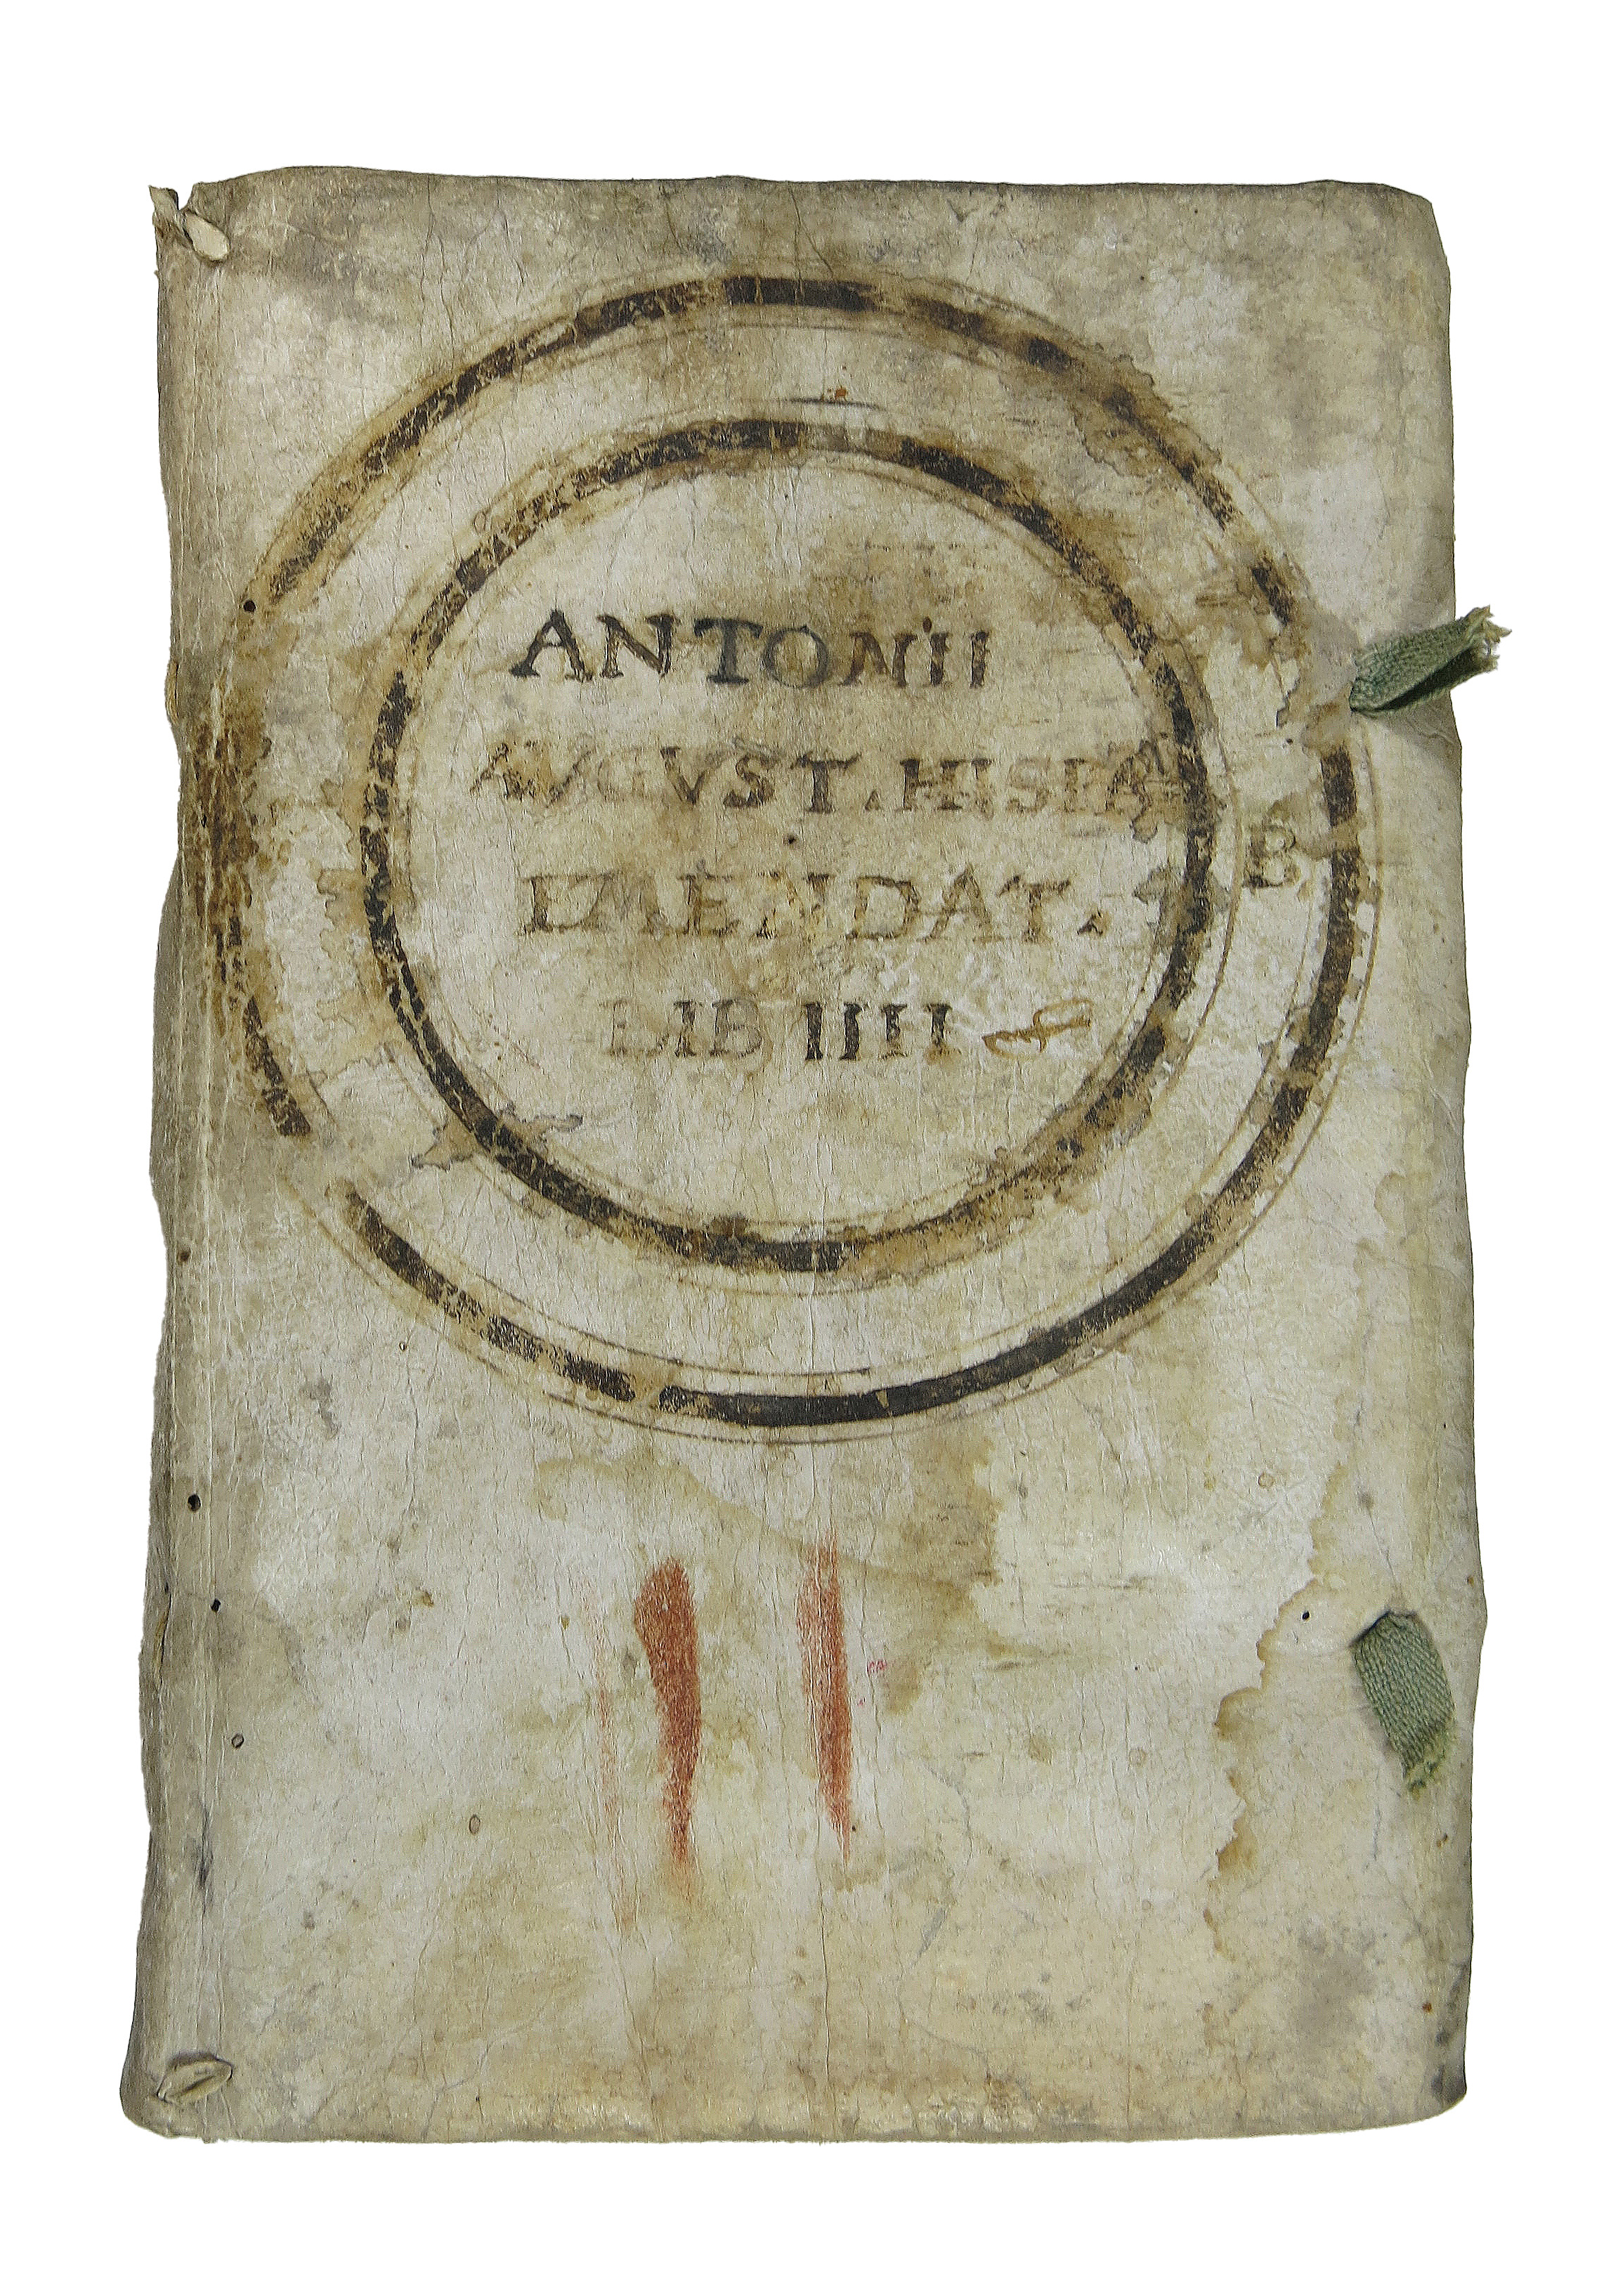 ANTONII
AVGVST. HISPA
EMENDAT.
B
LIB IIII